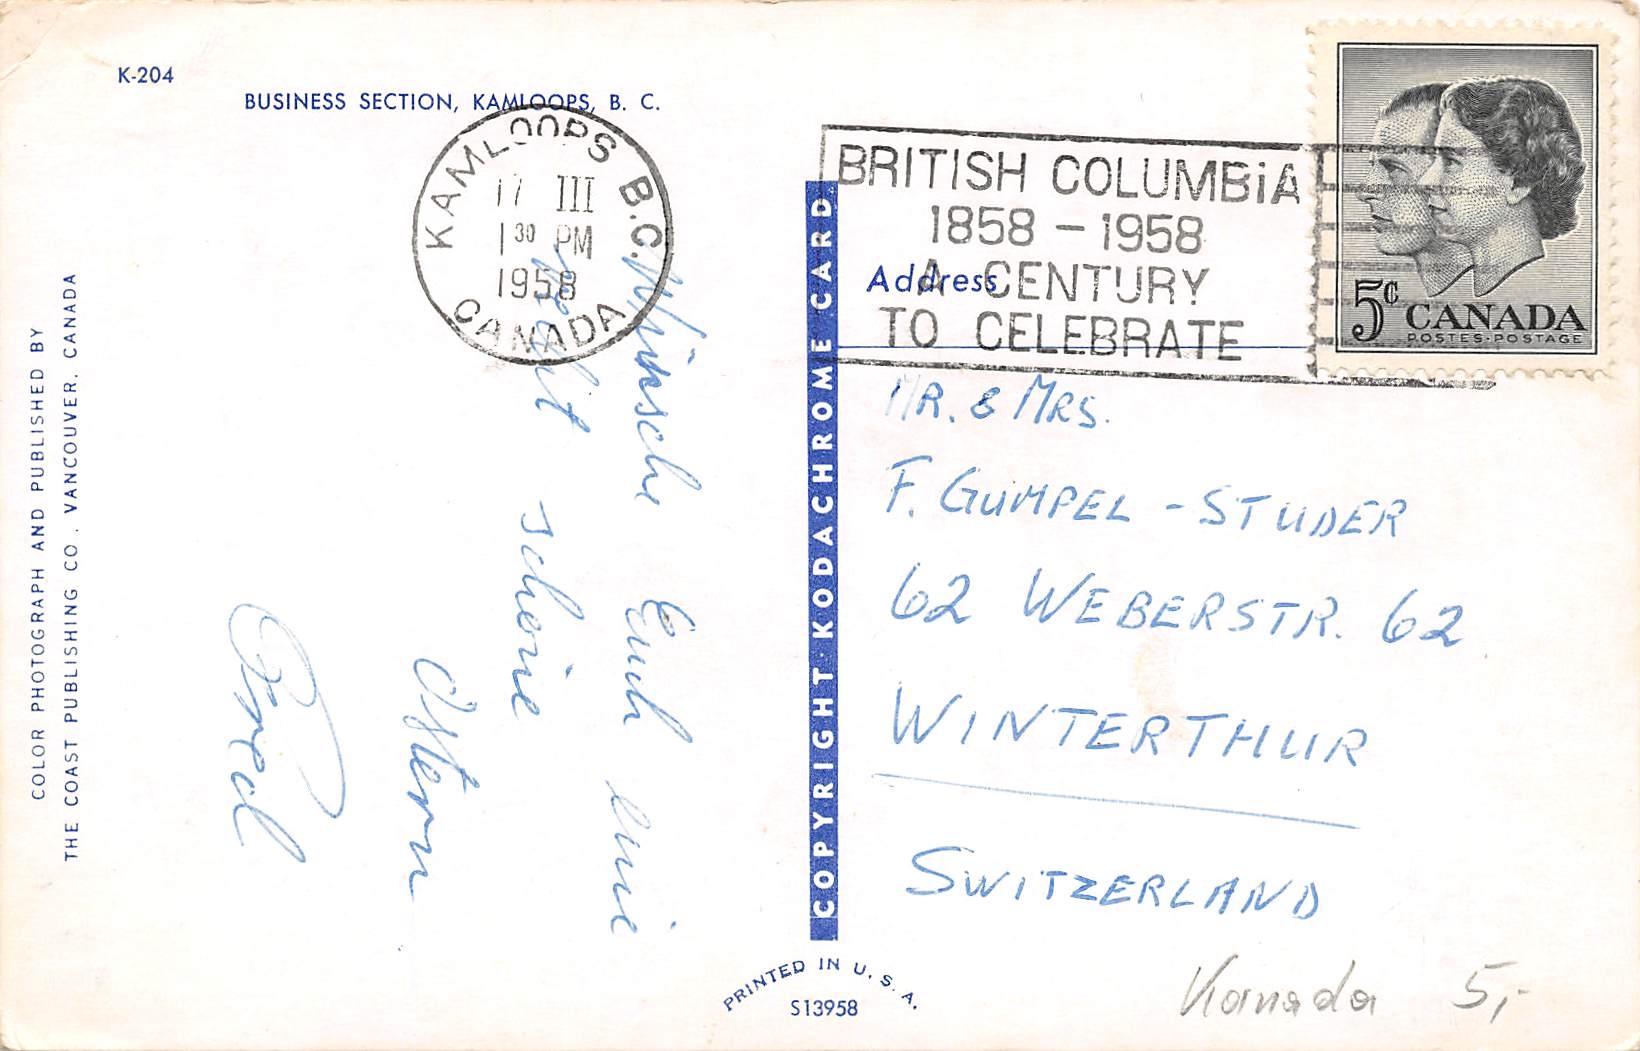 K-204
BUSINESS SECTION, KAMLOOPS, B. C.
KAMLOOPS B.C.
17 III
1 30 PM
1958
CANADA
BRITISH COLUMBiA
1858 - 1958
A CENTURY
TO CELEBRATE
5c CANADA
POSTES-POSTAGE
Address
Wünsche Euch eine
recht schöne
Ostern
MR. & MRS.
F. GUMPEL - STUDER
62 WEBERSTR. 62
WINTERTHUR
SWITZERLAND
COPYRIGHT·KODACHROME CARD
COLOR PHOTOGRAPH AND PUBLISHED BY
THE COAST PUBLISHING CO. VANCOUVER, CANADA
PRINTED IN U. S. A.
S13958
Kanada 5,-